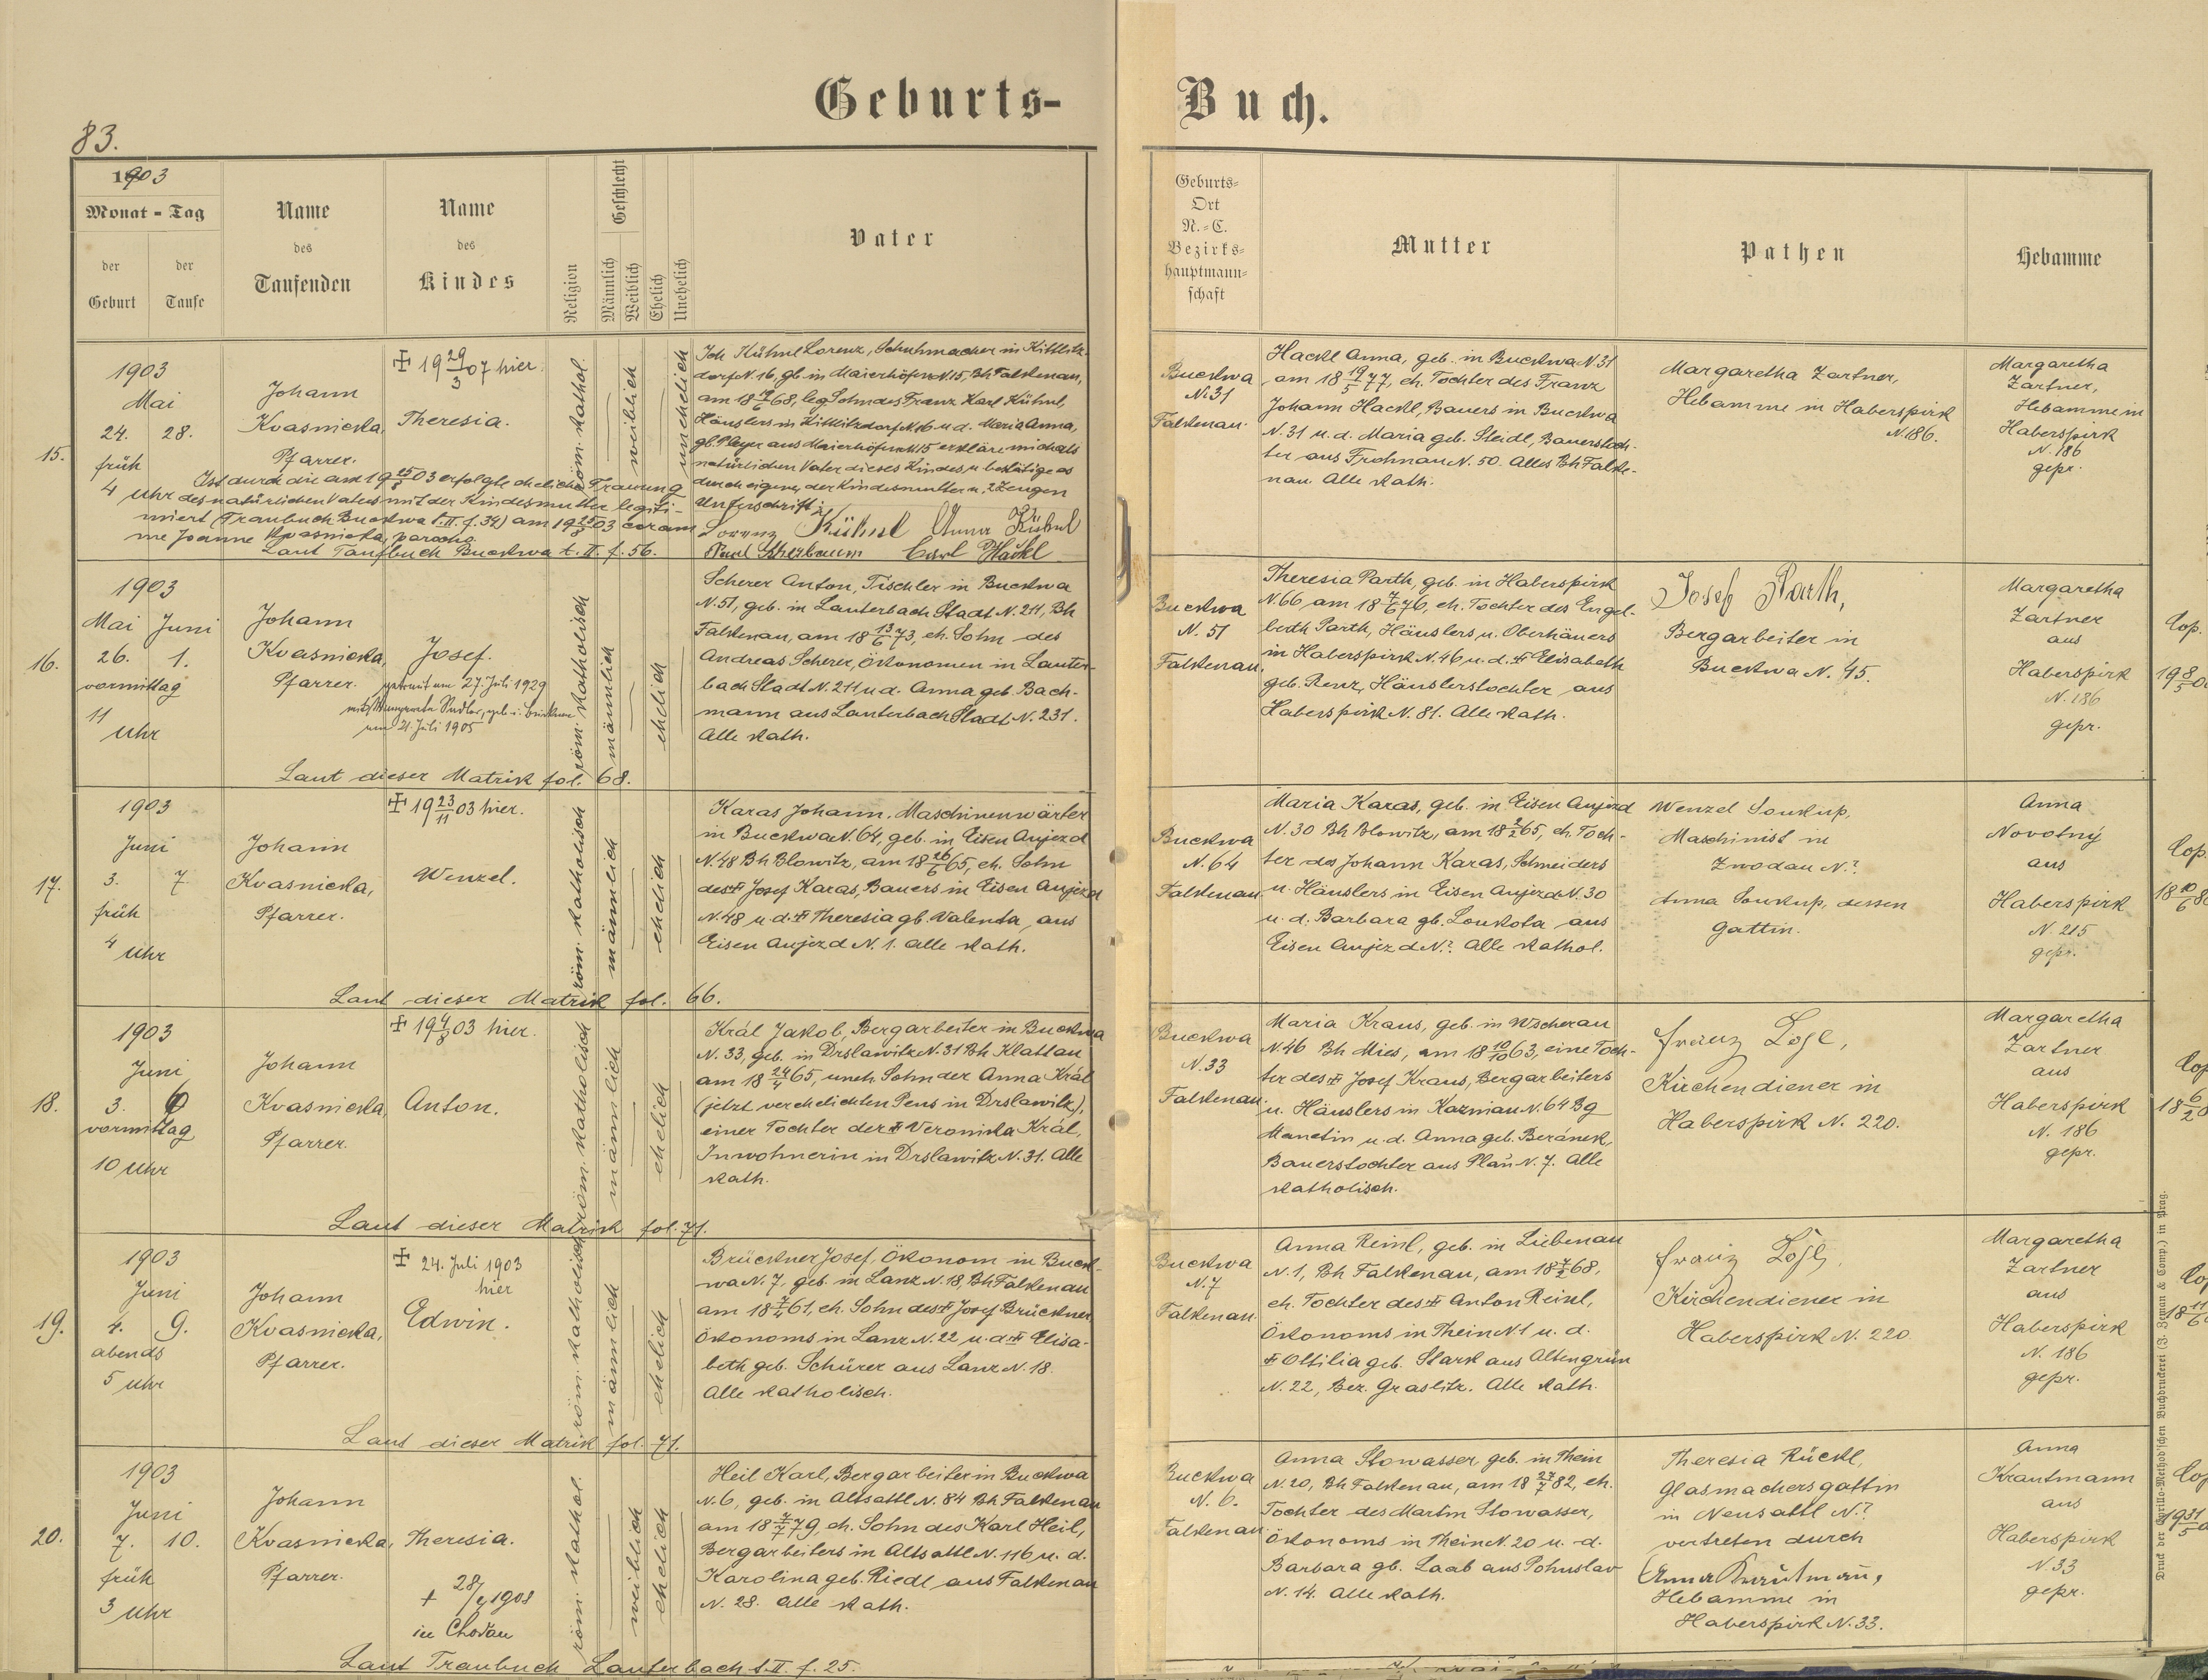 Geburts-
Buch.
83.
1903
Monat - Tag
der Geburt
der Taufe
Name des Taufenden
Name des Kindes
Religion
Geschlecht
Männlich
Weiblich
Ehelich
Unehelich
Vater
Geburts-
Ort
N.-C.
Bezirks-
hauptmann-
schaft
Mutter
Pathen
Hebamme
15.
1903
Mai
24. 28.
früh
4 Uhr
Johann
Kvasnicka,
Pfarrer.
✠ 19 29/3 07 hier.
Theresia.
röm. kathol.
weiblich
unehelich
Ich Kühnl Lorenz, Schuhmacher in Kittlitz-
dorf N. 16, gb. in Maierhöfen N. 15, Bh Falkenau,
Sohn des Franz Karl Kühnl,
Häuslers in Kittlitzdorf N. 16 u. d. Maria Anna,
gb. Pleyer aus Maierhöfen N. 15 erkläre mich als
natürlichen Vater dieses Kindes u. bestätige es
durch eigene, der Kindesmutter u. 2 Zeugen
Unterschrift:
Lorenz Kühnl Anna Kühnl
Paul Scherbaum Carl Hackl
Ist durch die am 19 25/8 03 erfolgte eheliche Trauung
des natürlichen Vaters mit der Kindesmutter legiti-
miert (Traubuch Buckwa t. II. f. 34) am 19 25/8 03 coram
me Joanne Kvasnicka, parocho.
Laut Taufbuch Buckwa t. II f. 56.
Buckwa
N. 31
Falkenau.
Hackl Anna, geb. in Buckwa N. 31
am 18 19/5 77, eh. Tochter des Franz
Johann Hackl, Bauers in Buckwa
N. 31 u. d. Maria geb. Steidl, Bauerstoch-
ter aus Frohnau N. 50. Alles Bh Falke-
nau. Alle kath.
Margaretha Zartner,
Hebamme in Haberspirk
N. 186.
Margaretha
Zartner,
Hebamme in
Haberspirk
N. 186
gepr.
16.
1903
Mai Juni
26. 1.
vormittag
11
Uhr
Johann
Kvasnicka,
Pfarrer.
Josef.
getraut am 27. Juli 1929
am 21. Juli 1905
röm. katholisch
männlich
ehelich
Scherer Anton, Tischler in Buckwa
N. 51, geb. in Lauterbach Stadt N. 211, Bh
Falkenau, am 18 13/6 73, eh. Sohn des
Andreas Scherer, Ökonomen in Lauter-
bach Stadt N. 211 u. d. Anna geb. Bach-
mann aus Lauterbach Stadt N. 231.
Alle kath.
Laut dieser Matrik fol. 68.
Buckwa
N. 51
Falkenau.
Theresia Parth, geb. in Haberspirk
N. 66 am 18 7/6 76, eh. Tochter des Engel-
berth Parth, Häuslers u. Oberhäuers
in Haberspirk N. 46 u. d. ✠ Elisabeth
geb. Renz, Häuslerstochter aus
Haberspirk N. 81. Alle kath.
Josef Parth,
Bergarbeiter in
Buckwa N. 45.
Margaretha
Zartner
aus
Haberspirk
N. 186
gepr.
Cop.
17.
1903
Juni
3. 7.
früh
4
Uhr
Johann
Kvasnicka,
Pfarrer.
✠ 19 23/11 03 hier.
Wenzel.
röm. katholisch
männlich
ehelich
Karas Johann, Maschinenwärter
in Buckwa N. 64, geb. in Eisen Aujezd
N. 48 Bh Blowitz, am 18 26/6 65, eh. Sohn
des ✠ Josef Karas, Bauers in Eisen Aujezd
N. 48 u. d. ✠ Theresia gb. Valenta, aus
Eisen Aujezd N. 1. Alle kath.
Laut dieser Matrik fol. 66.
Buckwa
N. 64
Falkenau.
Maria Karas, geb. in Eisen Aujezd
N. 30 Bh Blowitz, am 18 2/2 65, eh. Toch-
ter des Johann Karas, Schneiders
u. Häuslers in Eisen Aujezd N. 30
u. d. Barbara gb. Loukota aus
Eisen Aujezd N.? Alle kathol.
Wenzel Soukup,
Maschinist in
Zwodau N.?
Anna Soukup, dessen
Gattin.
Anna
Novotný
aus
Haberspirk
N. 215
gepr.
Cop.
18.
1903
Juni
3.
vormittag
10 Uhr
Johann
Kvasnicka,
Pfarrer.
✠ 19 4/8 03 hier.
Anton.
röm. katholisch
männlich
ehelich
Král Jakob, Bergarbeiter in Buckwa
N. 33, geb. in Drslawitz N. 31 Bh Klattau
am 18 24/4 65, uneh. Sohn der Anna Král
(jetzt verehelichten Pens in Drslawitz),
einer Tochter der ✠ Veronika Král,
Inwohnerin in Drslawitz N. 31. Alle
kath.
Laut dieser Matrik fol. 71.
Buckwa
N. 33
Falkenau.
Maria Kraus, geb. in Wscherau
N. 46 Bh Mies, am 18 10/10 63, eine Toch-
ter des ✠ Josef Kraus, Bergarbeiters
u. Häuslers in Kazniau N. 64 Bg
Manetin u. d. Anna geb. Beránek,
Bauerstochter aus Plan N. 7. Alle
katholisch.
Franz Lösl,
Kirchendiener in
Haberspirk N. 220.
Margaretha
Zartner
aus
Haberspirk
N. 186
gepr.
Cop
19.
1903
Juni
4. 9.
abends
5 Uhr
Johann
Kvasnicka,
Pfarrer.
✠ 24. Juli 1903
hier
Edwin.
röm. katholisch
männlich
ehelich
Brückner Josef, Ökonom in Buck-
wa N. 7, geb. in Lanz N. 18, Bh Falkenau
am 18 7/4 61, eh. Sohn des ✠ Josef Brückner
Ökonoms in Lanz N. 22 u. d. ✠ Elisa-
beth geb. Schürer aus Lanz N. 18.
Alle katholisch.
Laut dieser Matrik fol. 71.
Buckwa
N. 7
Falkenau.
Anna Reinl, geb. in Liebenau
N. 1, Bh Falkenau, am 18 7/2 68,
eh. Tochter des ✠ Anton Reinl,
Ökonoms in Thein N. 1 u. d.
✠ Ottilia geb. Stark aus Altengrün
N. 22, Bez. Graslitz. Alle kath.
Franz Lösl,
Kirchendiener in
Haberspirk N. 220
Margaretha
Zartner
aus
Haberspirk
N. 186
gepr.
20.
1903
Juni
7. 10.
früh
3 Uhr
Johann
Kvasnicka,
Pfarrer.
Theresia.
in Chodau
röm. kathol.
weiblich
ehelich
Heil Karl, Bergarbeiter in Buckwa
N. 6, geb. in Altsattl N. 84 Bh Falkenau
am 18 7/7 79, eh. Sohn des Karl Heil,
Bergarbeiters in Altsattl N. 116 u. d.
Karolina geb. Riedl aus Falkenau
N. 28. Alle kath.
Laut Traubuch Lauterbach t. II f. 25.
Buckwa
N. 6.
Falkenau
Anna Stowasser, geb. in Thein
N. 20, Bh Falkenau, am 18 27/7 82, eh.
Tochter des Martin Stowasser,
Ökonoms in Thein N. 20 u. d.
Barbara gb. Laab aus Pohuslav
N. 14. Alle kath.
Theresia Rückl,
Glasmachersgattin
in Neusattl N.?
vertreten durch
Anna Krautmann,
Hebamme in
Haberspirk N. 33.
Anna
Krautmann
aus
Haberspirk
N. 33
gepr.
Druck der Cyrillo-Method'schen Buchdruckerei (J. Zeman & Comp.) in Prag.